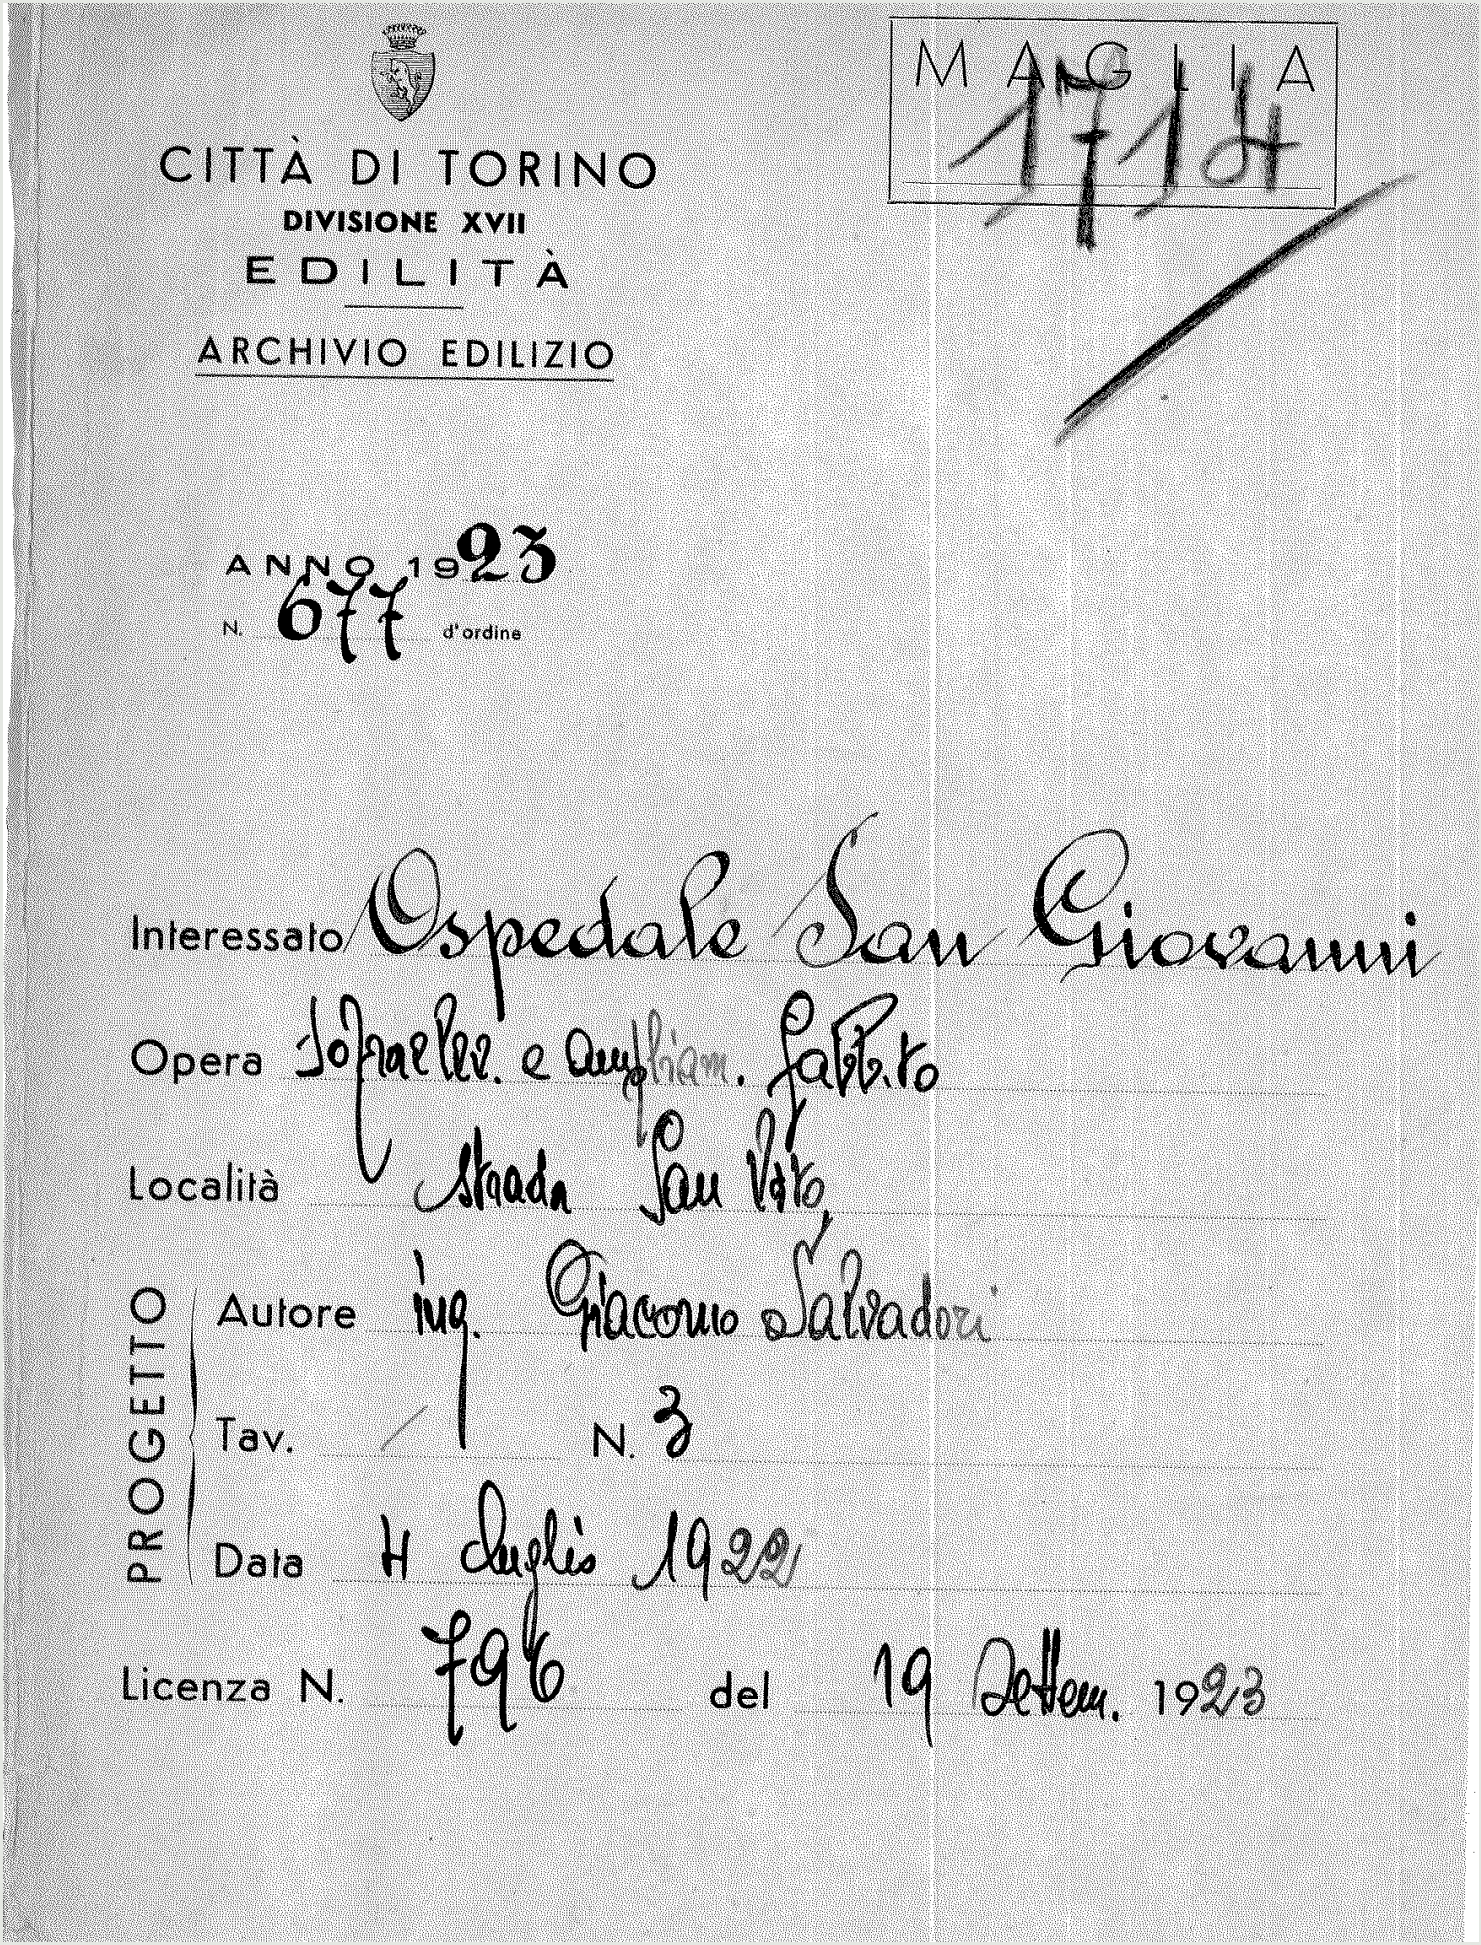 CITTÀ DI TORINO
DIVISIONE XVII
EDILITÀ
ARCHIVIO EDILIZIO
MAGLIA
1714
ANNO 1923
N. 677 d'ordine
Interessato Ospedale San Giovanni
Opera Sopraelev. e Ampliam. fabb.to
Località strada San Vito
PROGETTO
Autore ing. Giacomo Salvadori
Tav. / N. 3
Data 4 Luglio 1922
Licenza N. 796 del 19 Settem. 1923